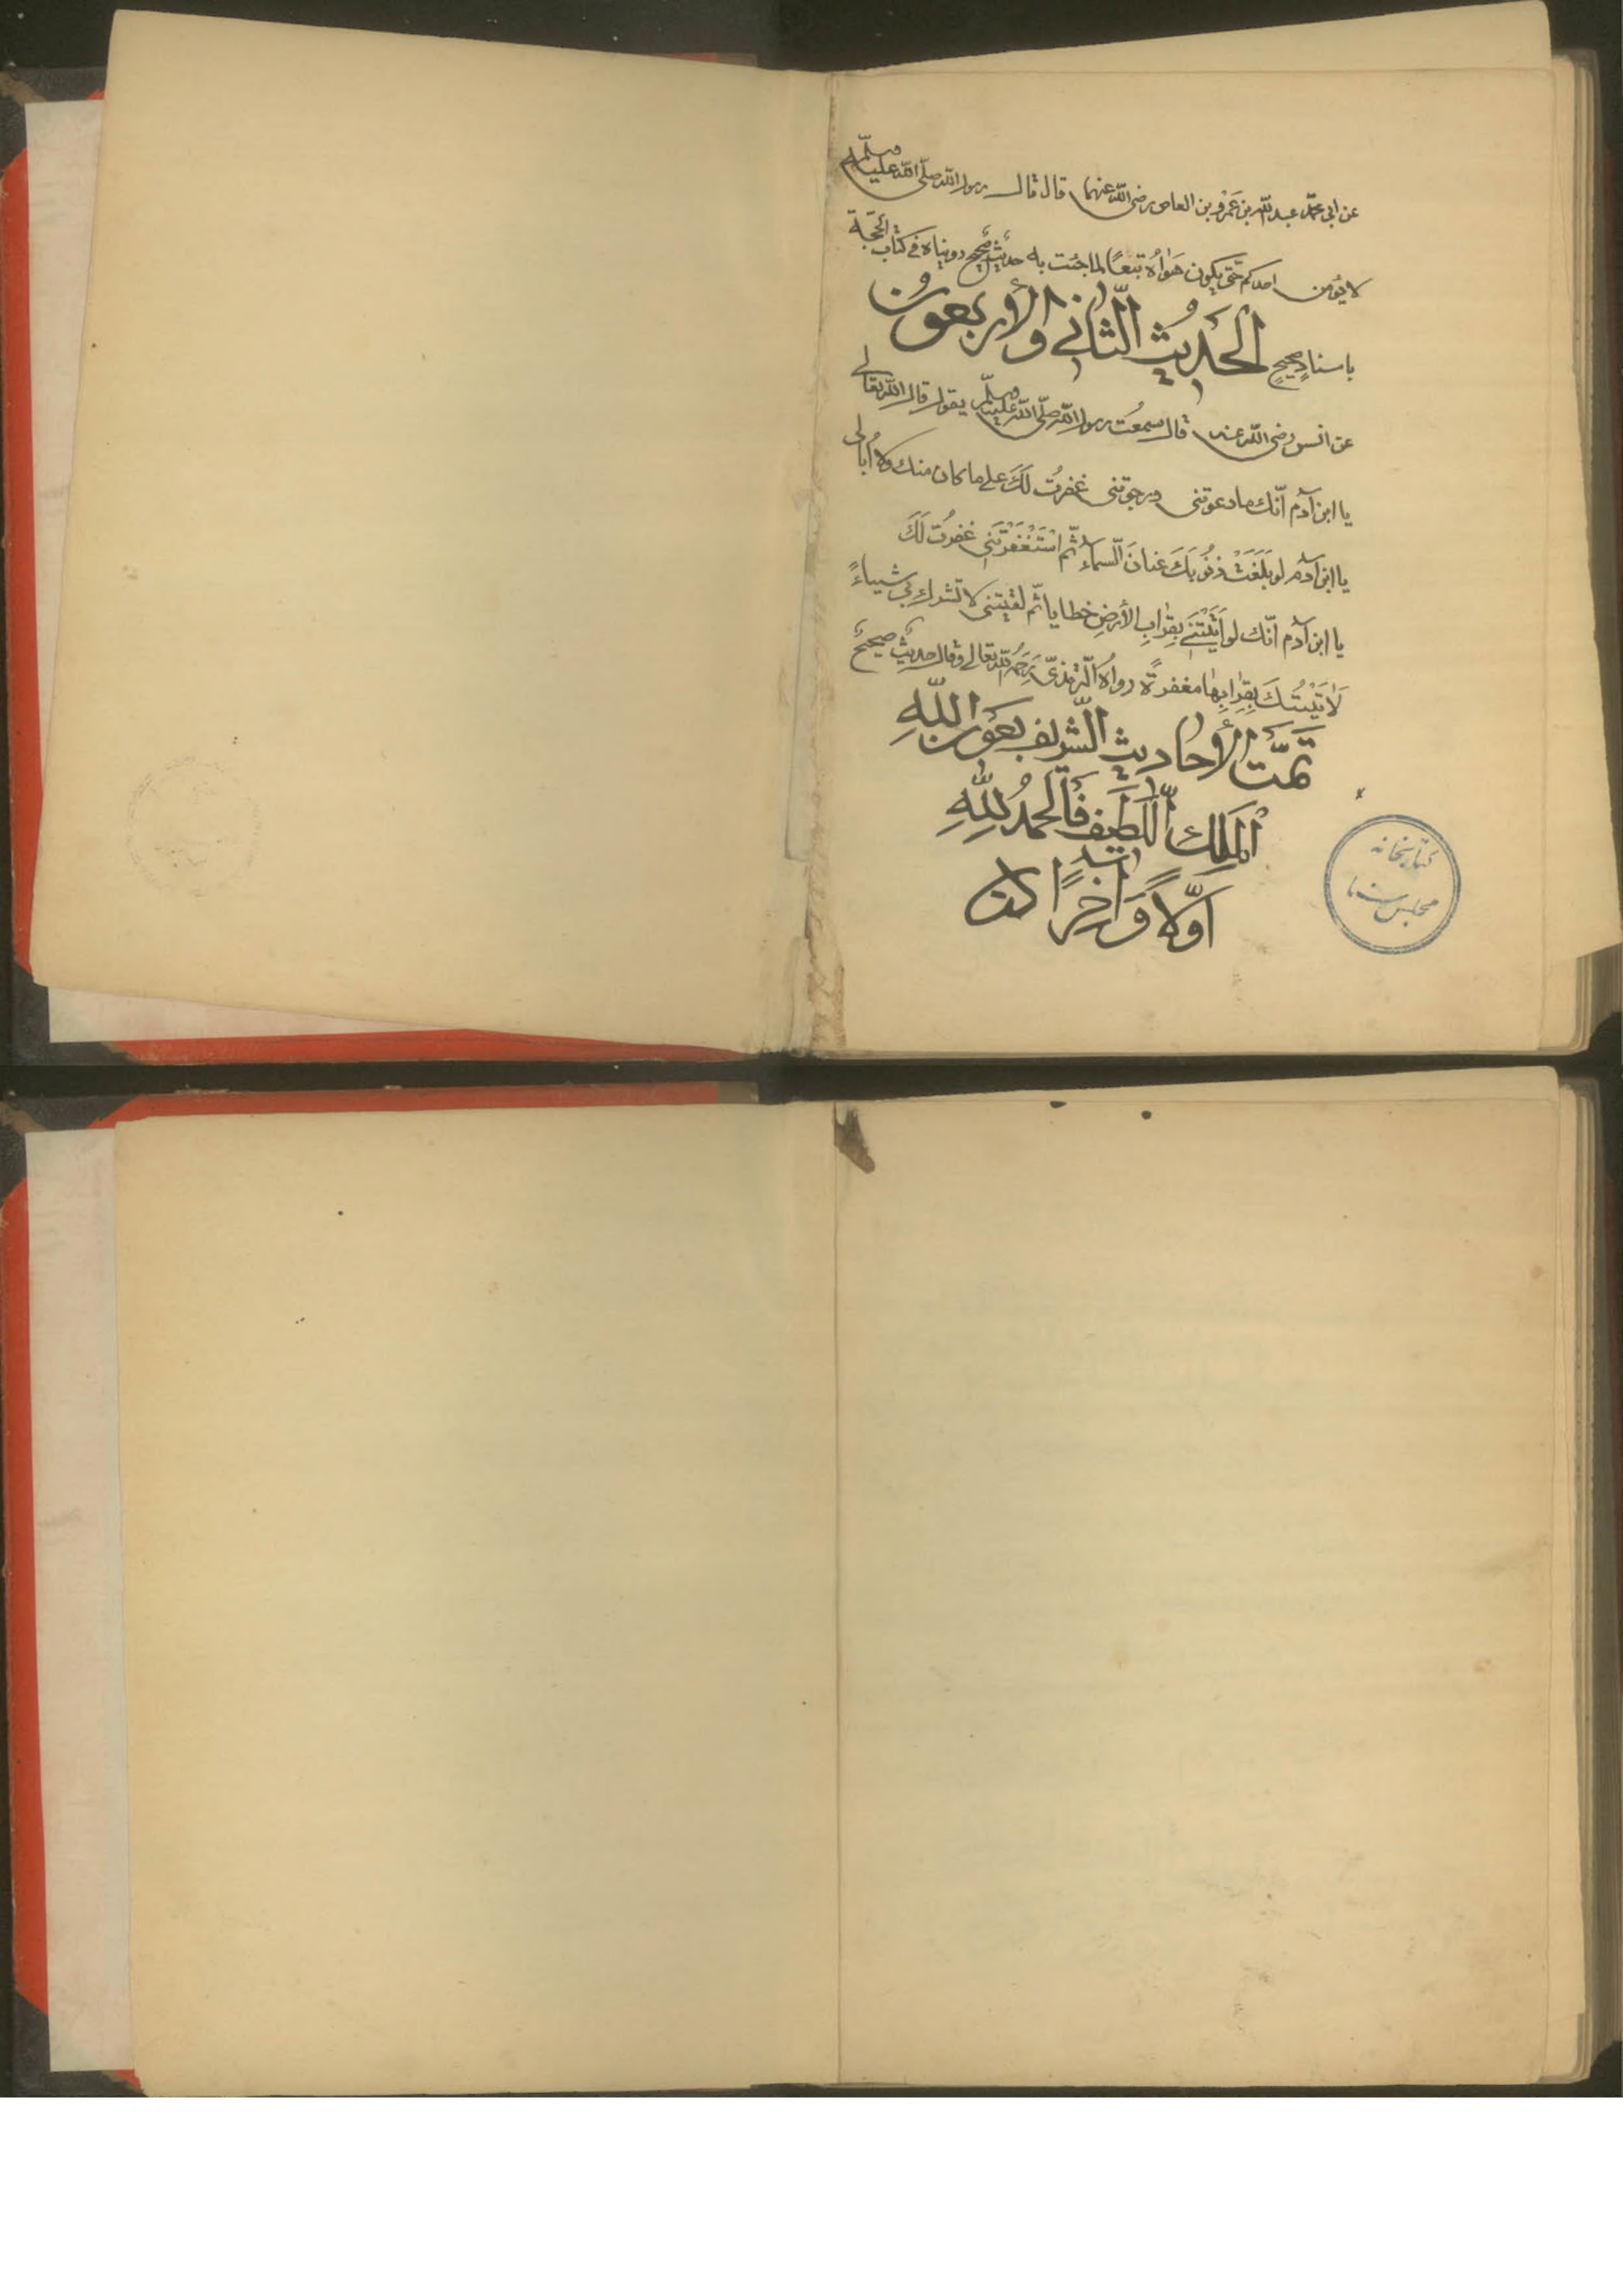 عن ابى محمّد عبد اللّه بن عَمْرو بن العاص رضى اللّه عنهما قال قال رسول اللّه صلّى اللّه عليه وسلّم
لا يؤمن احدكم حتّى يكون هَواهُ تبعًا لما جئت به حديثٌ صحيحٌ رويناه فى كتاب الحجّة
باسنادٍ صحيحٍ الحَديثُ الثّانى والأربعونُ
عن انس رضى اللّه عنه قال سمعتُ رسول اللّه صلّى اللّه عليه وسلّم يقول قال اللّه تعالى
يا ابن آدم انّك ما دعوتنى ورجوتنى غفرتُ لَكَ على ما كان منك ولا اُبالى
يا ابن آدم لو بَلَغَتْ ذنُوبكَ عَنانَ السّماء ثمّ اسْتَغْفَرْتَنى غفرتُ لَكَ
يا ابن آدم انّك لو اَتَيْتَنى بقِرابِ الأرضِ خطايا ثمّ لقيتنى لا تشرك بى شيئاً
لَأتَيْتُكَ بقِرابِها مغفرةً رواهُ الّترمذىّ رَحِمَهُ اللّه تعالى وقال حديثٌ صحيحٌ
تَمَّتَ الأحاديث الشّريف بعَون اللّهِ
اْلمَلِك اللَّطيف فَالحمدُ للّهِ
اَوّلاً وَآخِرًا
کتابخانه
مجلس سنا